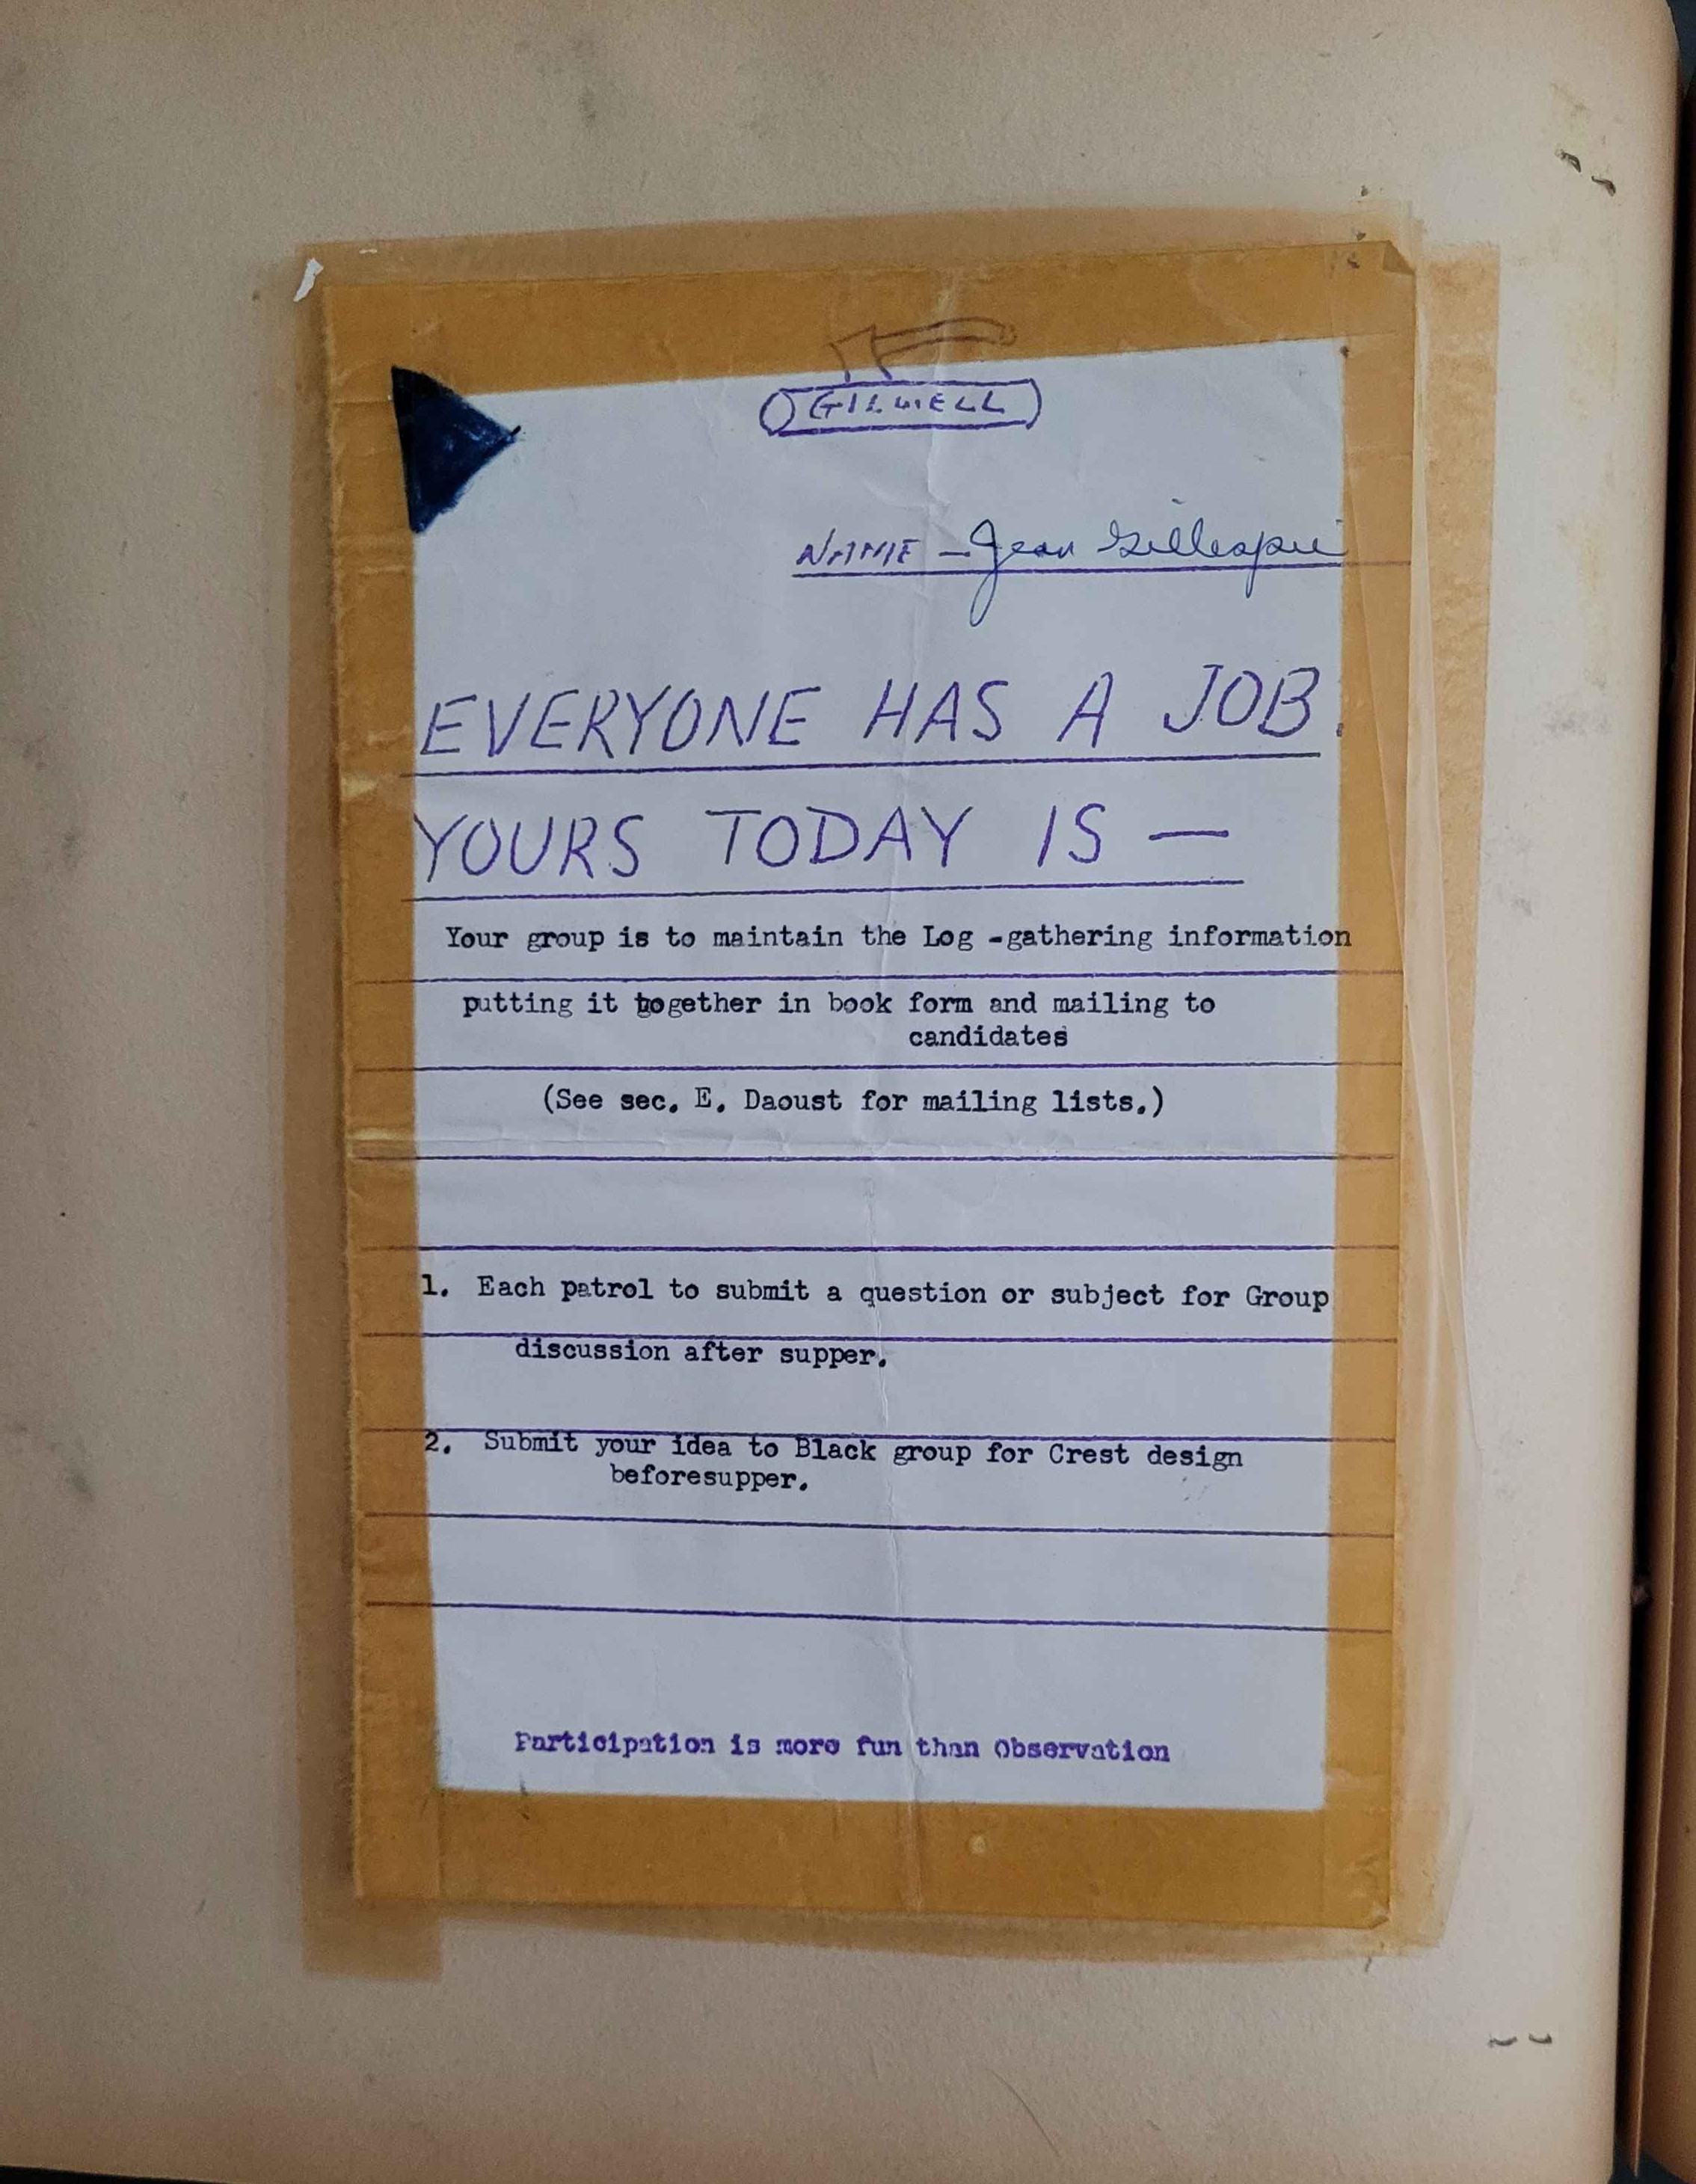 GILWELL
NAME - Jean Gillespie
EVERYONE HAS A JOB.
YOURS TODAY IS —
Your group is to maintain the Log -gathering information
putting it together in book form and mailing to
candidates
(See sec. E. Daoust for mailing lists.)
1. Each patrol to submit a question or subject for Group
discussion after supper.
2. Submit your idea to Black group for Crest design
beforesupper.
Participation is more fun than Observation